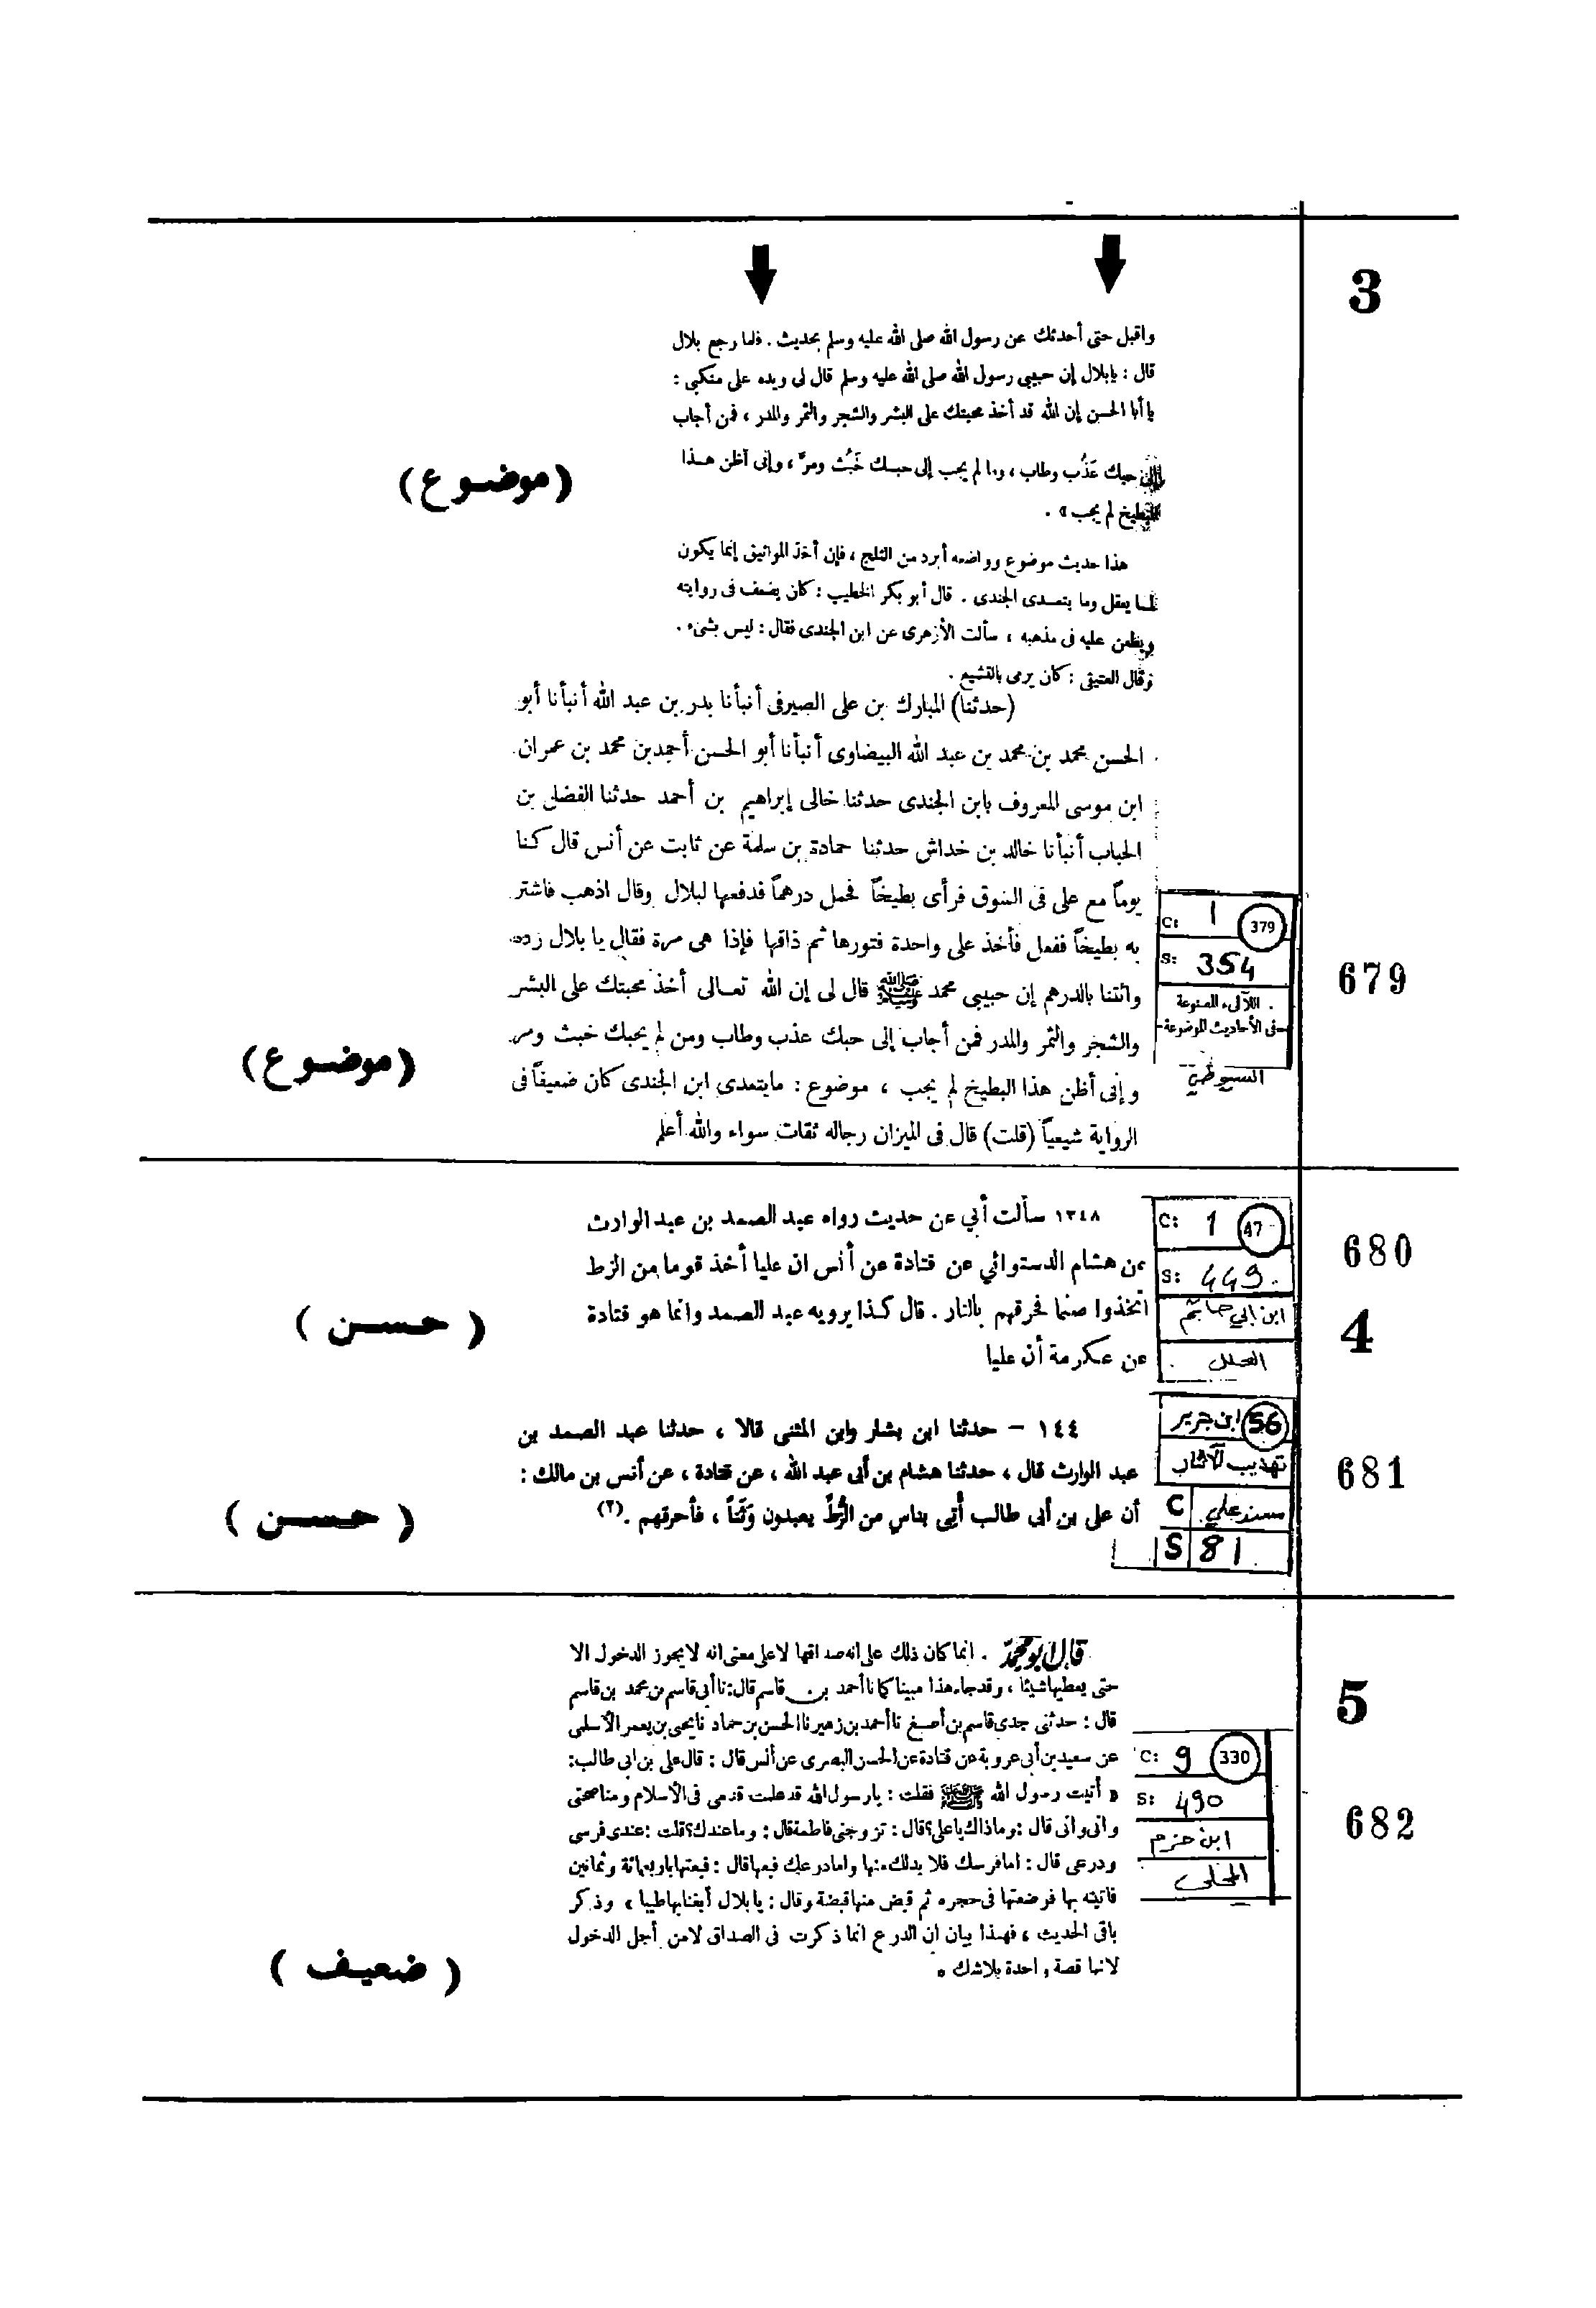 3
واقبل حتى أحدثك عن رسول الله صلى الله عليه وسلم بحديث . فلما رجع بلال
قال : يابلال إن حبيبى رسول الله صلى الله عليه وسلم قال لى ويده على منكبى :
يا أبا الحسن إن الله قد أخذ محبتك على البشر والشجر والثمر والمدر ، فمن أجاب
إلى حبك عَذُب وطاب ، وما لم يجب إلى حبك خَبُث ومرّ ، وإنى أظن هذا
البطيخ لم يجب » .
(موضوع)
هذا حديث موضوع وواضعه أبرد من الثلج ، فإن أخذ المواثيق إنما يكون
لما يعقل وما يتعدى الجندى . قال أبو بكر الخطيب : كان يضعف فى روايته
ويطعن عليه فى مذهبه ، سألت الأزهرى عن ابن الجندى فقال : ليس بشىء .
وقال العتيقى : كان يرمى بالتشيع .
(حدثنا) المبارك بن على الصيرفى أنبأنا بدر بن عبد الله أنبأنا أبو
الحسن محمد بن محمد بن عبد الله البيضاوى أنبأنا أبو الحسن أحمد بن محمد بن عمران
ابن موسى المعروف بابن الجندى حدثنا خالى إبراهيم بن أحمد حدثنا الفضل بن
الحباب أنبأنا خالد بن خداش حدثنا حمادة بن سلمة عن ثابت عن أنس قال كنا
يوماً مع على فى السوق فرأى بطيخاً فحمل درهماً فدفعها لبلال وقال اذهب فاشتر
به بطيخاً ففعل فأخذ على واحدة فتورها ثم ذاقها فإذا هى مرة فقال يا بلال رده
وائتنا بالدرهم إن حبيبى محمد ﷺ قال لى إن الله تعالى أخذ محبتك على البشر
والشجر والثمر والمدر فمن أجاب إلى حبك عذب وطاب ومن لم يحبك خبث ومر
وإنى أظن هذا البطيخ لم يجب ، موضوع : مايتعدى ابن الجندى كان ضعيفاً فى
الرواية شيعياً (قلت) قال فى الميزان رجاله ثقات سواء والله أعلم
(موضوع)
C: 1 379
S: 354
اللآلىء المصنوعة
فى الأحاديث الموضوعة
السيوطي
679
١٣٤٨ سألت أبي عن حديث رواه عبد الصمد بن عبد الوارث
عن هشام الدستوائي عن قتادة عن أنس ان عليا أخذ قوما من الزط
اتخذوا صنما فحرقهم بالنار . قال كذا يرويه عبد الصمد وانما هو قتادة
عن عكرمة أن عليا
(حسن)
C: 1 47
S: 449
ابن ابي حاتم
العلل
680
4
١٤٤ – حدثنا ابن بشار وابن المثنى قالا ، حدثنا عبد الصمد بن
عبد الوارث قال ، حدثنا هشام بن أبى عبد الله ، عن قتادة ، عن أنس بن مالك :
أن على بن أبى طالب أُتِى بناس من الزُّطّ يعبدون وَثَناً ، فأحرقهم .(٢)
(حسن)
ابن جرير 56
تهذيب الآثار
مسند علي C
S 81
681
قال ابو محمد . انما كان ذلك على انه صداقها لا على معنى انه لا يجوز الدخول الا
حتى يعطيها شيئا ، وقد جاء هذا مبينا كما نا أحمد بن قاسم قال : نا أبى قاسم بن محمد بن قاسم
قال : حدثنى جدى قاسم بن أصبغ نا أحمد بن زهير نا الحسن بن حماد نا يحيى بن يعمر الأسلمى
عن سعيد بن أبى عروبة عن قتادة عن الحسن البصرى عن أنس قال : قال على بن ابى طالب :
« أتيت رسول الله ﷺ فقلت : يا رسول الله قد علمت قدمى فى الاسلام ومناصحتى
وانى وانى قال : وما ذاك يا على ؟ قال : تزوجنى فاطمة قال : وما عندك ؟ قلت : عندى فرسى
ودرعى قال : اما فرسك فلا بدلك منها واما درعك فبعها قال : فبعتها باربعمائة وثمانين
فاتيته بها فوضعتها فى حجره ثم قبض منها قبضة وقال : يا بلال أبغنا بها طيبا » وذكر
باقى الحديث ، فهذا بيان ان الدرع انما ذكرت فى الصداق لامن أجل الدخول
لانها قصة واحدة بلاشك .
(ضعيف)
5
C: 9 330
S: 490
ابن حزم
المحلى
682